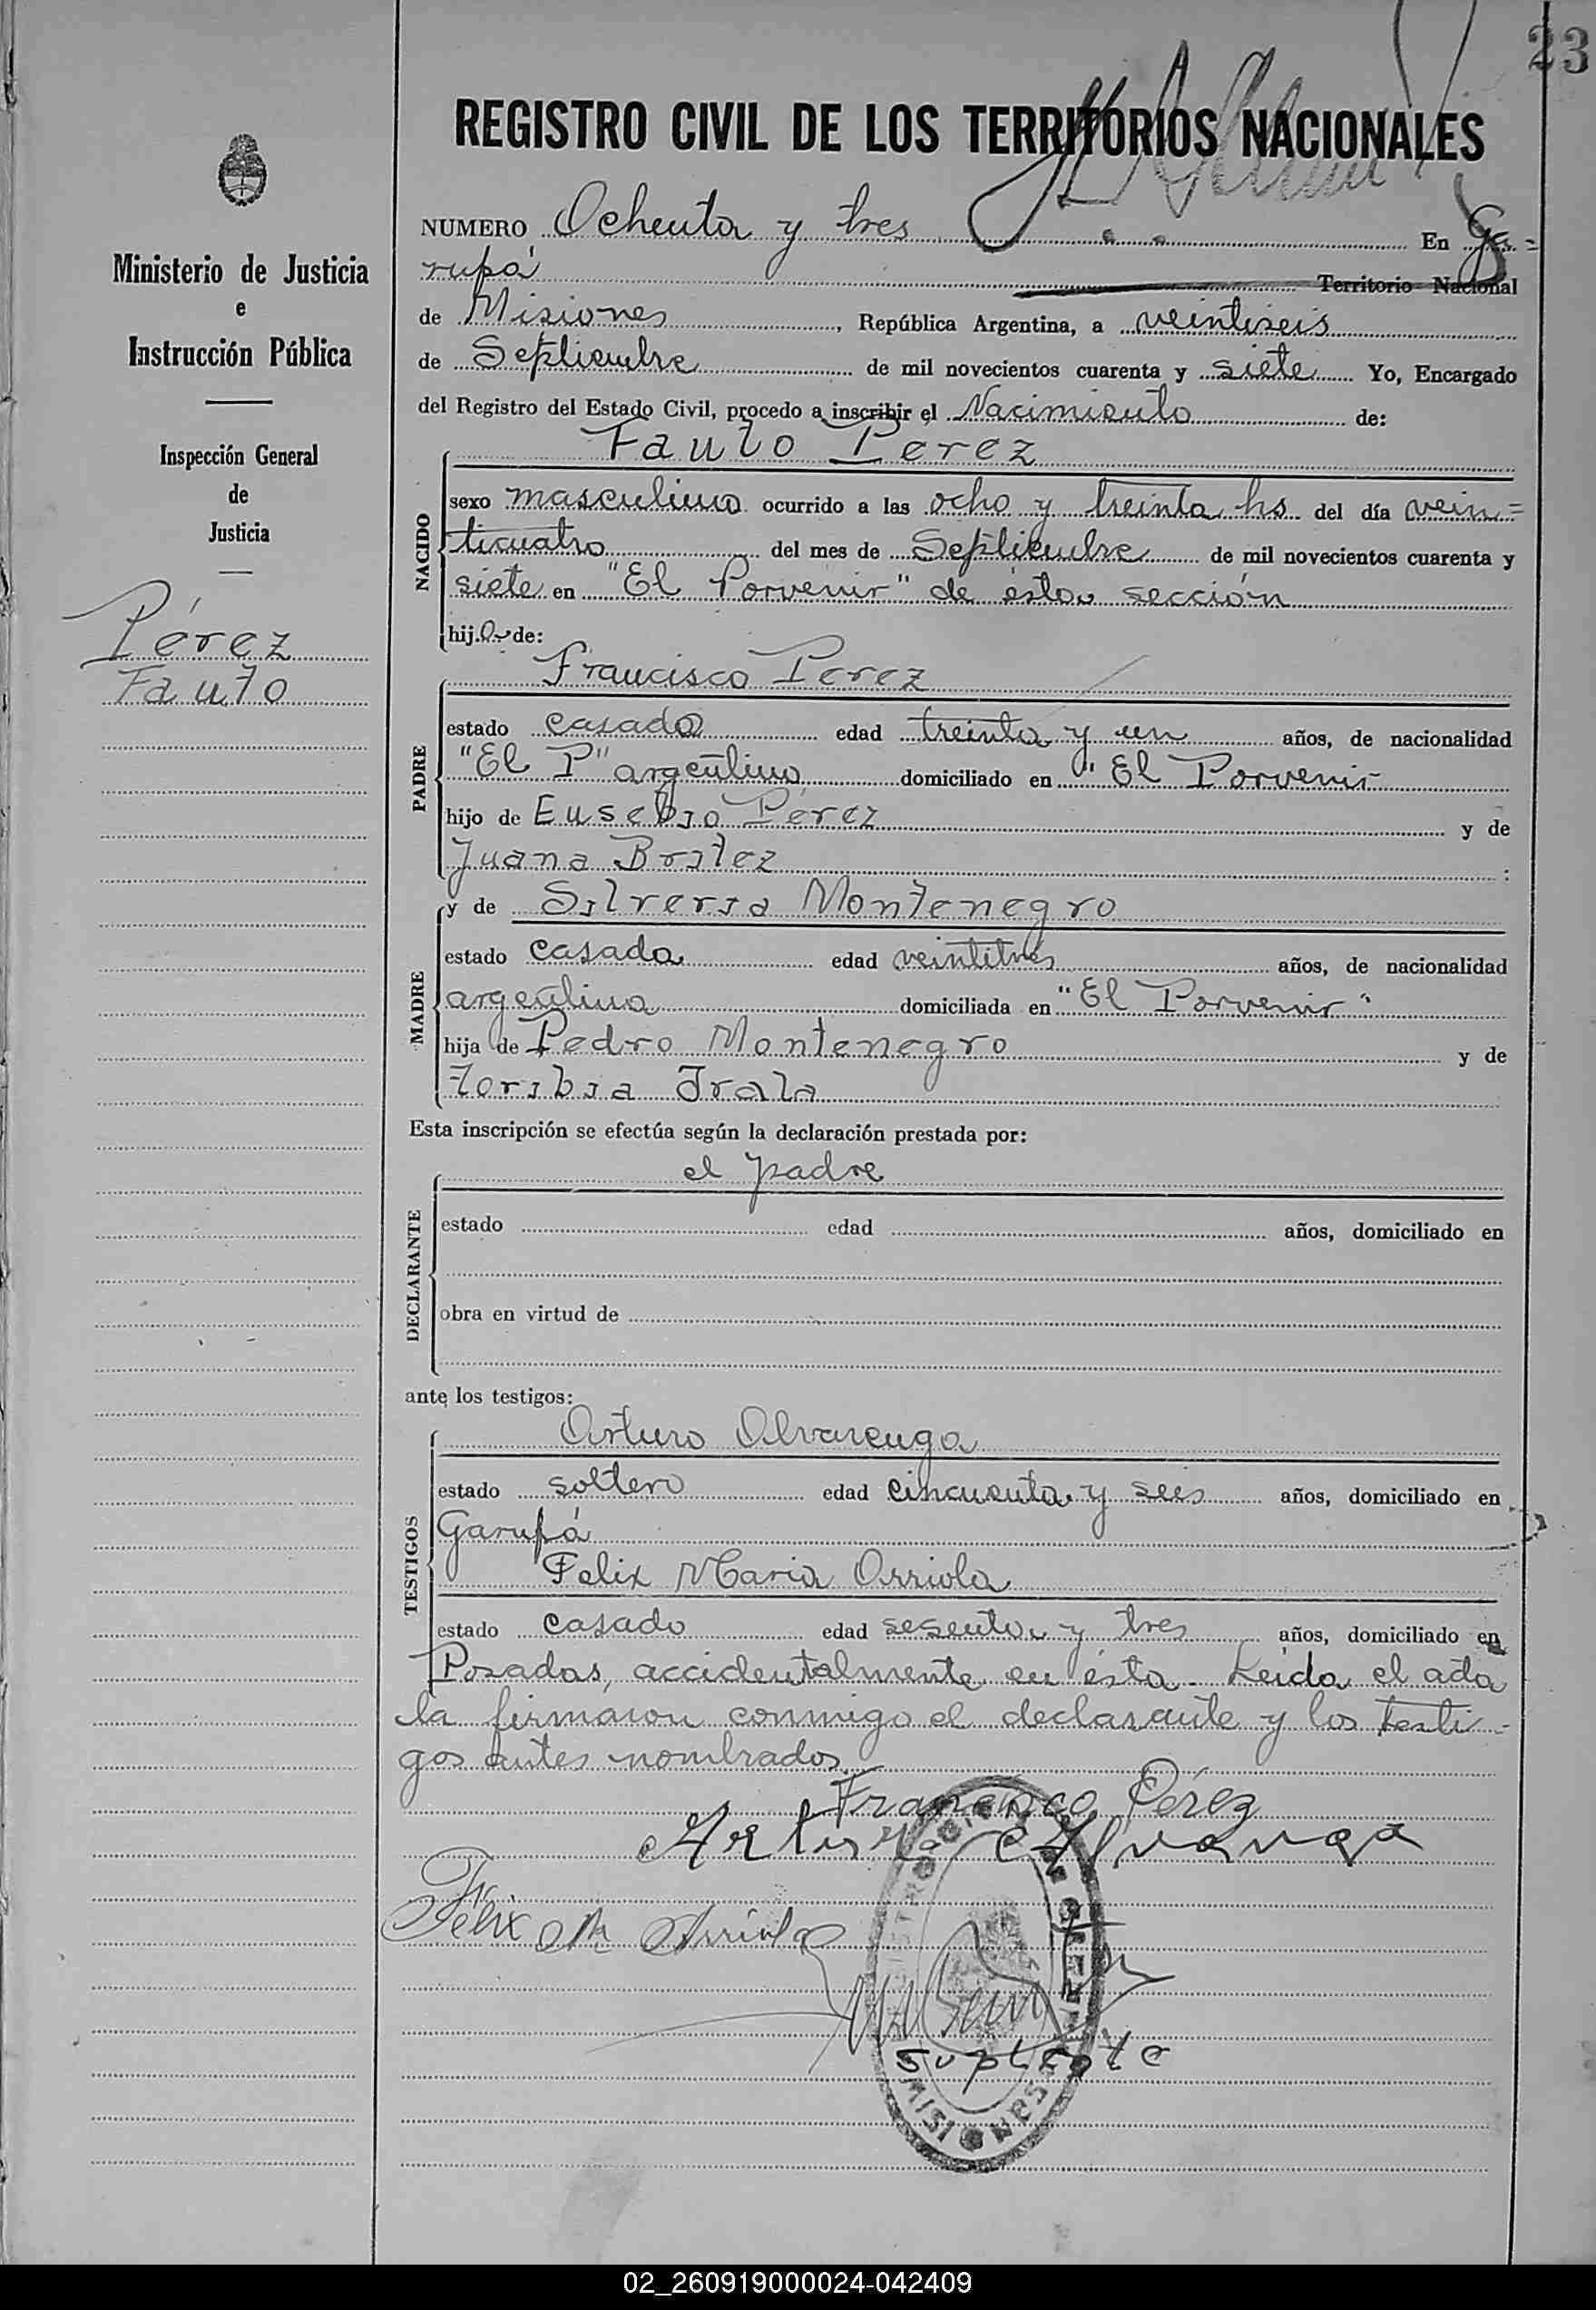 23
REGISTRO CIVIL DE LOS TERRITORIOS NACIONALES
Ministerio de Justicia
e
Instrucción Pública
Inspección General
de
Justicia
Pérez
Fauto
NUMERO Ochenta y tres En Ga=
rupá Territorio Nacional
de Misiones, República Argentina, a veintiseis
de Septiembre de mil novecientos cuarenta y siete Yo, Encargado
del Registro del Estado Civil, procedo a inscribir el Nacimiento de:
Fauto Perez
NACIDO
sexo masculino ocurrido a las ocho y treinta hs del día vein=
ticuatro del mes de Septiembre de mil novecientos cuarenta y
siete en "El Porvenir" de ésta sección
hijo de:
Francisco Perez
PADRE
estado casado edad treinta y un años, de nacionalidad
"El P" argentino domiciliado en "El Porvenir
hijo de Eusebio Pérez y de
Juana Britez :
y de Silveria Montenegro
MADRE
estado casada edad veintitrés años, de nacionalidad
argentina domiciliada en "El Porvenir"
hija de Pedro Montenegro y de
Toribia Irala
Esta inscripción se efectúa según la declaración prestada por:
el padre
DECLARANTE
estado edad años, domiciliado en
obra en virtud de
ante los testigos:
Arturo Alvarenga
TESTIGOS
estado soltero edad cincuenta y seis años, domiciliado en
Garupá
Felix Maria Arriola
estado casado edad sesenta y tres años, domiciliado en
Posadas, accidentalmente en ésta. Leida el acta
la firmaron conmigo el declarante y los testi-
gos antes nombrados.
Francisco Pérez
Félix M Arriola
Suplente
MISIONES
02_260919000024-042409